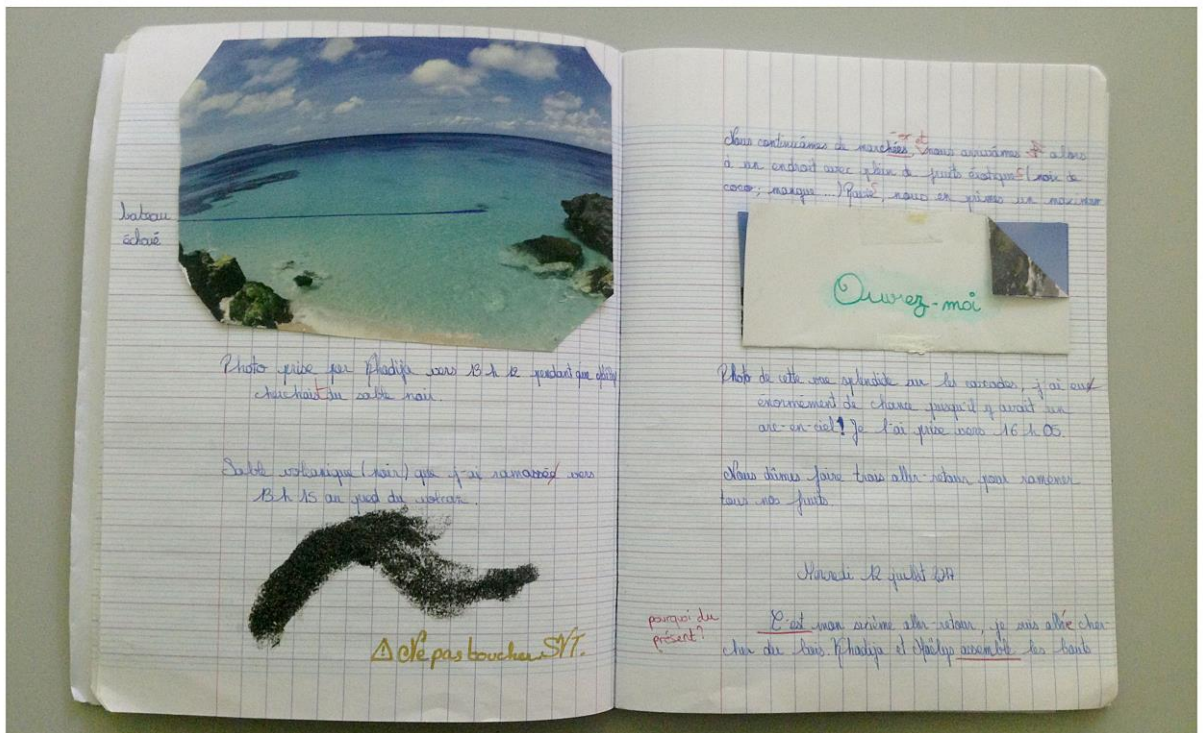 bateau
échoué
Photo prise par Khadija vers 13 h 12 pendant que Maëlys
cherchait du sable noir.
Sable volcanique (noir) que j'ai ramassée vers
13 h 15 au pied du volcan.
⚠ Ne pas toucher SVP.
Nous continuâmes de marchées, nous arrivâmes alors
à un endroit avec plein de fruits éxotiques (noix de
coco; mangue ...) Ravis, nous en prîmes un maximum
Ouvrez-moi
Photo de cette vue splendide sur les cascades, j'ai eux
énormément de chance puisqu'il y avait un
arc-en-ciel! Je l'ai prise vers 16 h 05.
Nous dûmes faire trois aller-retour pour ramener
tous nos fruits.
Mercredi 12 juillet 2017
pourquoi du
présent?
C'est mon sixième aller-retour, je suis allée cher-
cher du bois. Khadija et Maëlys assemble les bouts